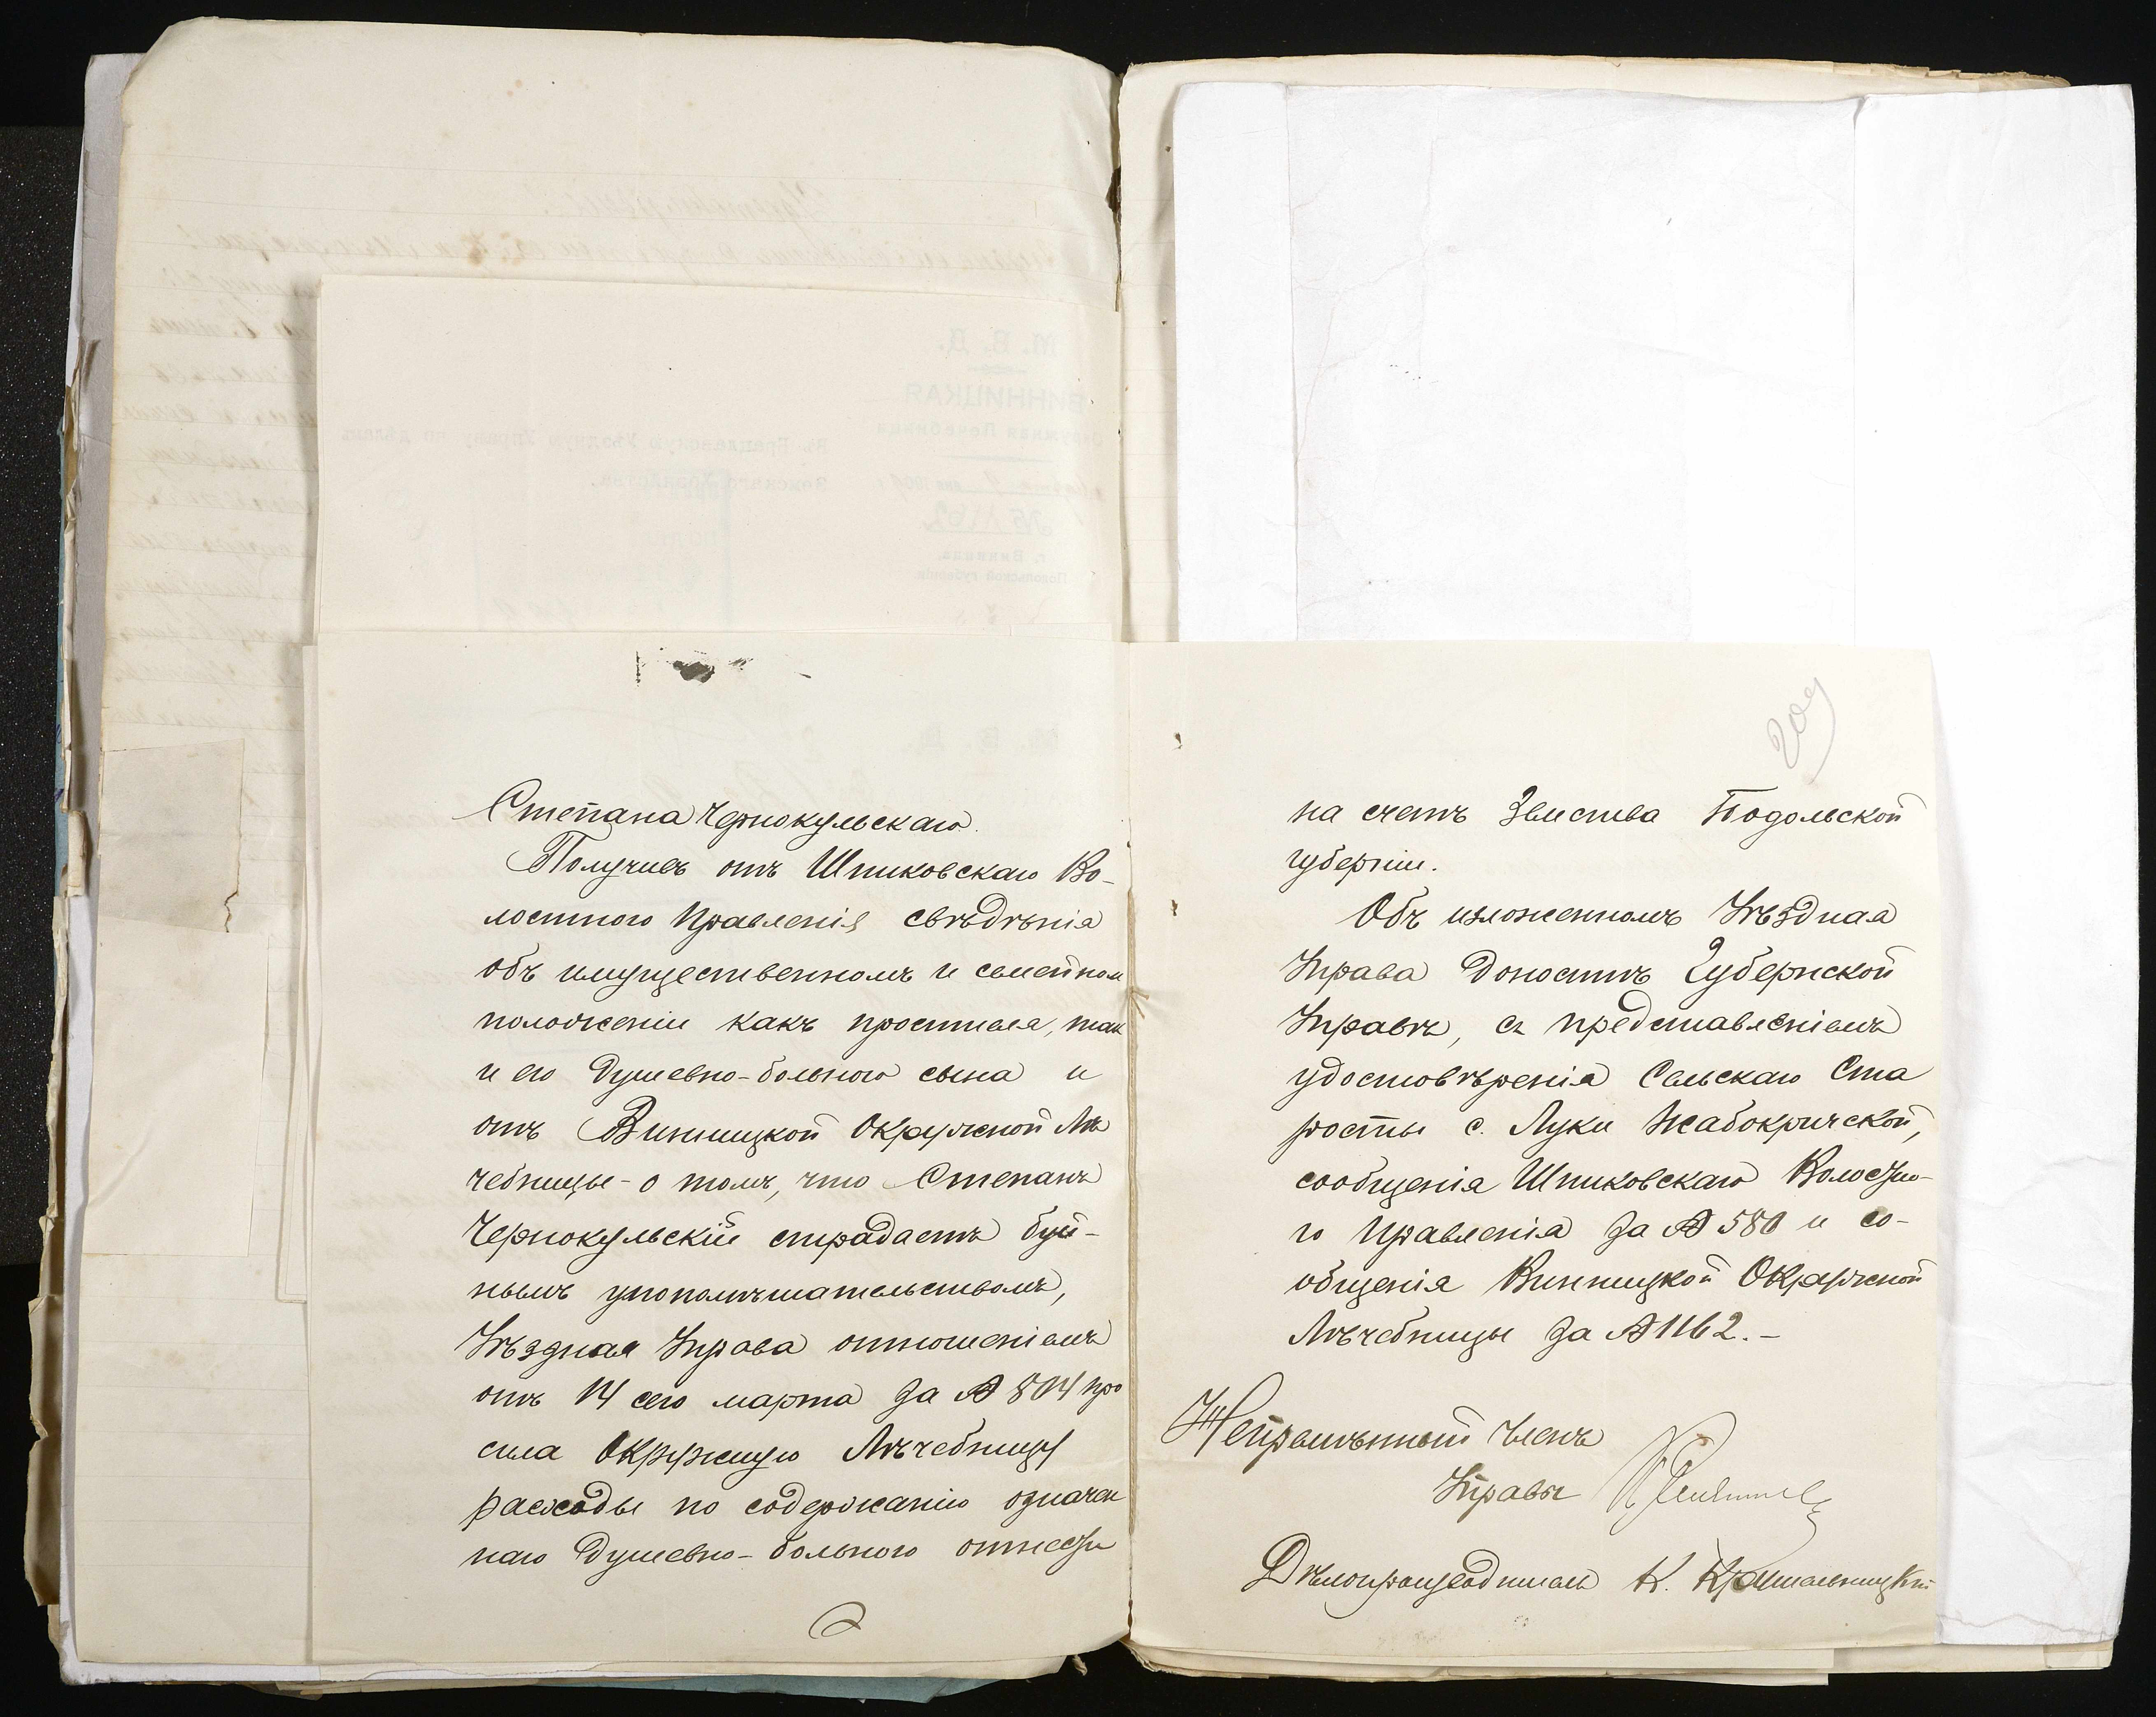 Степана Чернокульскаго.
Получивъ отъ Шпиковскаго Во-
лостного Правленія свѣдѣнія
объ имущественномъ и семейном
положеніи какъ просителя, так
и его душевно-больного сына и
отъ Винницкой Окружной Лѣ
чебницы - о томъ, что Степанъ
Чернокульскій страдаетъ буй-
нымъ умопомѣшательствомъ,
Уѣздная Управа отношеніемъ
отъ 14 сего марта за № 804 про
сила Окружную Лѣчебницу
расходы по содержанію означен
наго душевно-больного отнести
209
на счетъ Земства Подольской
губерніи.
Объ изложенномъ Уѣздная
Управа доноситъ Губернской
Управѣ, съ представленіемъ
удостовѣренія Сельскаго Ста
росты с. Луки Жабокричской,
сообщенія Шпиковскаго Волостно-
го Правленія за № 580 и со-
общенія Винницкой Окружной
Лѣчебницы за № 1162. -
Непремѣнный Членъ
Управы
Дѣлопроизводитель К.
М. В. Д.
ВИННИЦКАЯ
Окружная Лечебница
№ 1162
г. Винница,
Подольской губерніи
въ Брацлавскую Уѣздную Управу по дѣламъ
Земскаго Хозяйства.